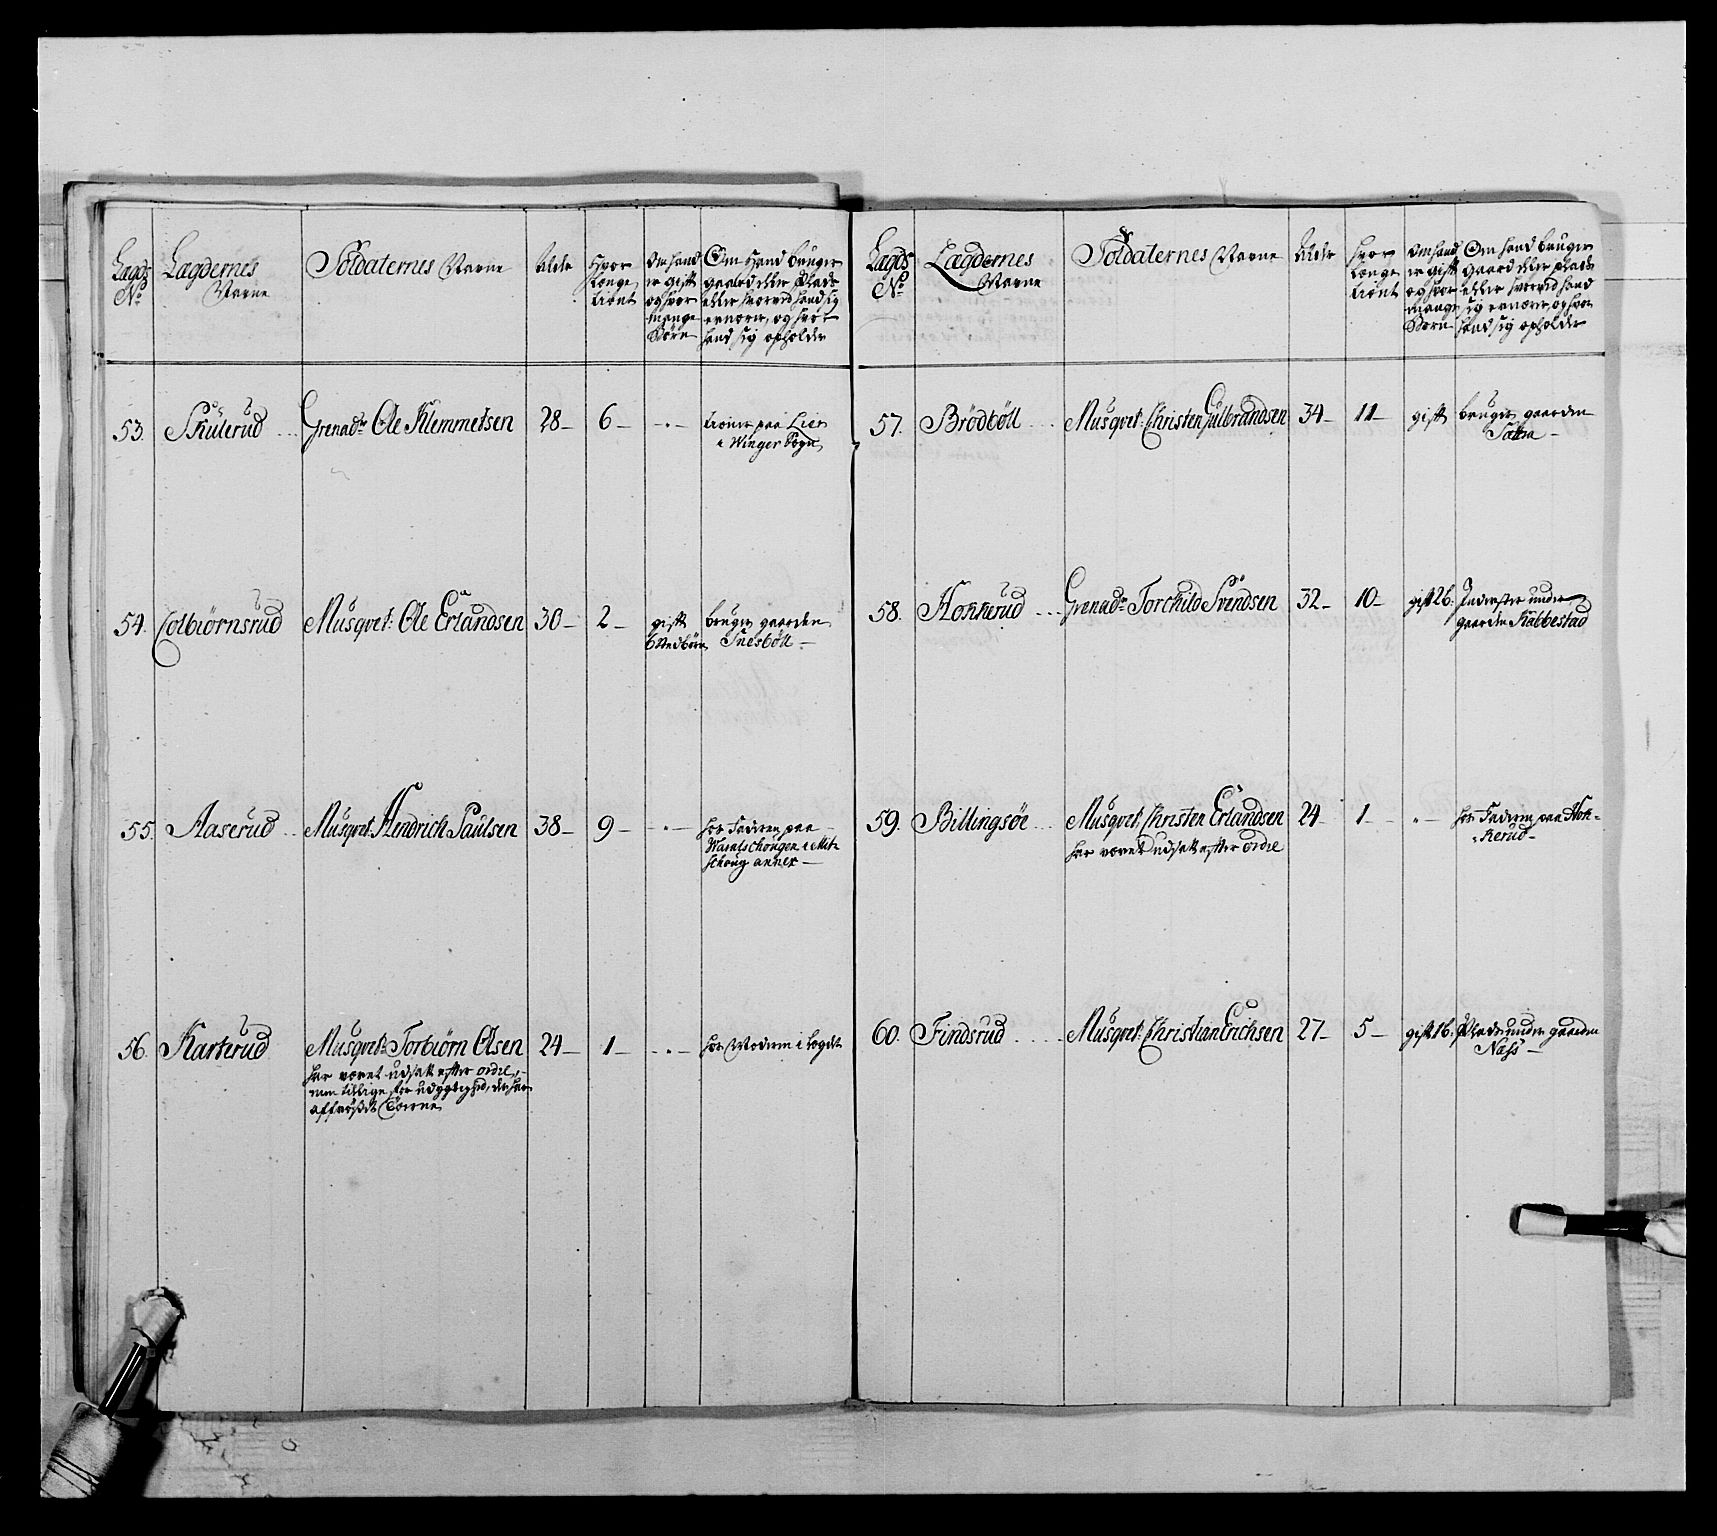 Lægds No
Lægdernes Navne
Soldaternes Navne
Alder
Hvor længe tient
Om hand er gift og hvor mange Børn
Om Hand bruger gaard eller Plads eller hvorved hand sig ernærer, og hvor hand sig opholder
53. Skulerud ... Grenadr Ole Klemmetsen 28 – 6 – – " – tiener paa Lier
i Winger Sogn
54. Colbiørnsrud Musqvet: Ole Erlandsen 30 – 2 – gift bruger gaarden
6 Stedbørn Snesböll –
55. Aaserud .. Musqvet Hendrich Paulsen 38 – 9 – – " – hos Faderen paa
schoug annex –
56. Karterud Musqvet: Torbiørn Olsen 24 – 1 – – " – hos Moderen i Lægdet
har været udsatt efter ordre,
men tillige for udygtighed, der har
Lægds No
Lægdernes Navne
Soldaternes Navne
Alder
Hvor længe tient
Om hand er gift og hvor mange Børn
Om hand bruger gaard eller plads eller hvorved hand sig ernærer, og hvor hand sig opholder
57. Brödböll ... Musqvet: Christen Gulbrandsen 34 – 11 – gift bruger gaarden
Sætra –
58. Hokkerud ... Grenadr Torchild Svendsen 32 – 10 – gift 2b: Inderster under
gaarden Kabbestad
59. Billingsøe ... Musqvet: Christen Erlandsen 24 – 1 – " – hos Faderen paa Hok-
kerud –
har været udsatt efter ordre
60. Findsrud .... Musqvet: Christian Erichsen 27 – 5 – gift 1b: Plads under gaarden
Næss –